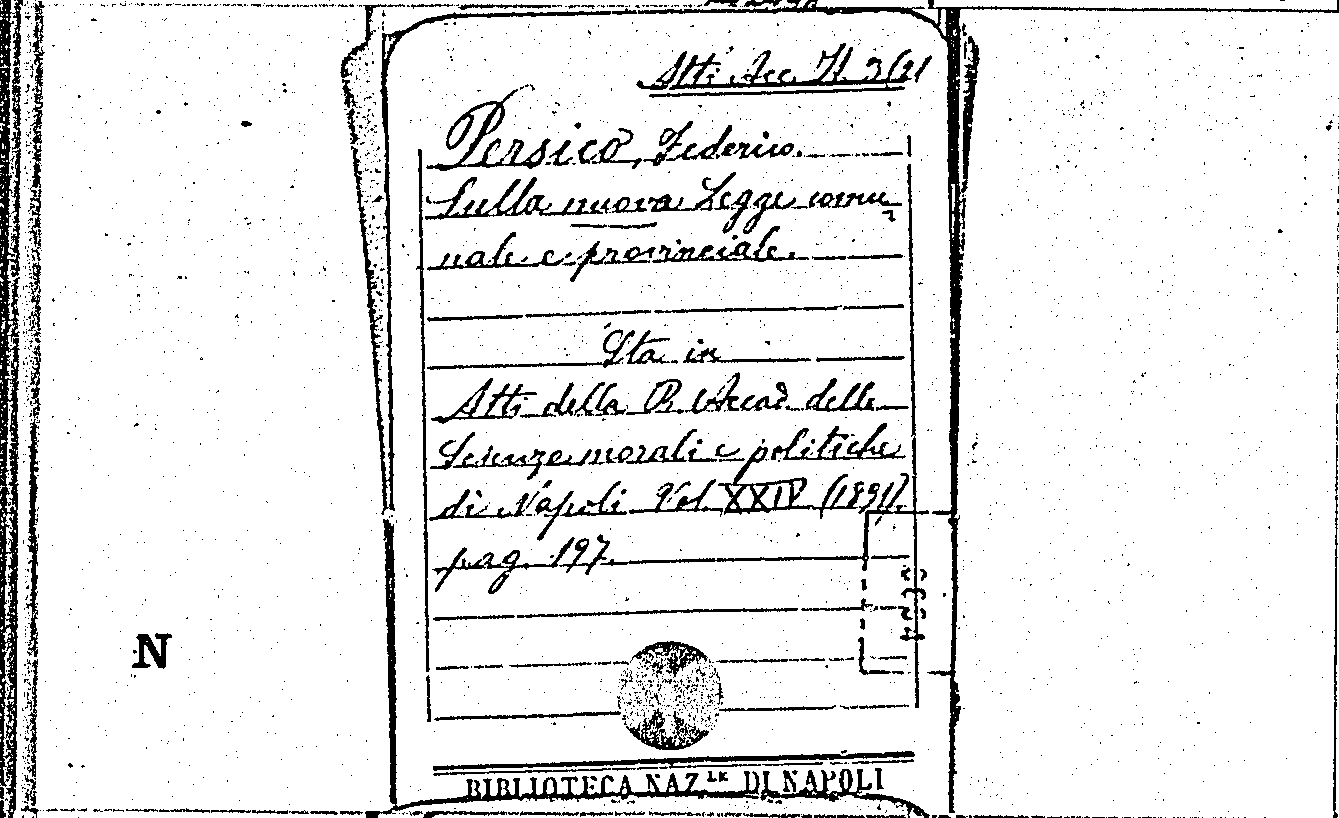 Atti Acc. H. 3(21
Persico, Federico.
Sulla nuova Legge comu
nale e provinciale.
Sta in
Atti della R. Accad. delle
Scienze morali e politiche
di Napoli. Vol. XXIV (1891).
pag. 197.
N
BIBLIOTECA NAZ.LE DI NAPOLI